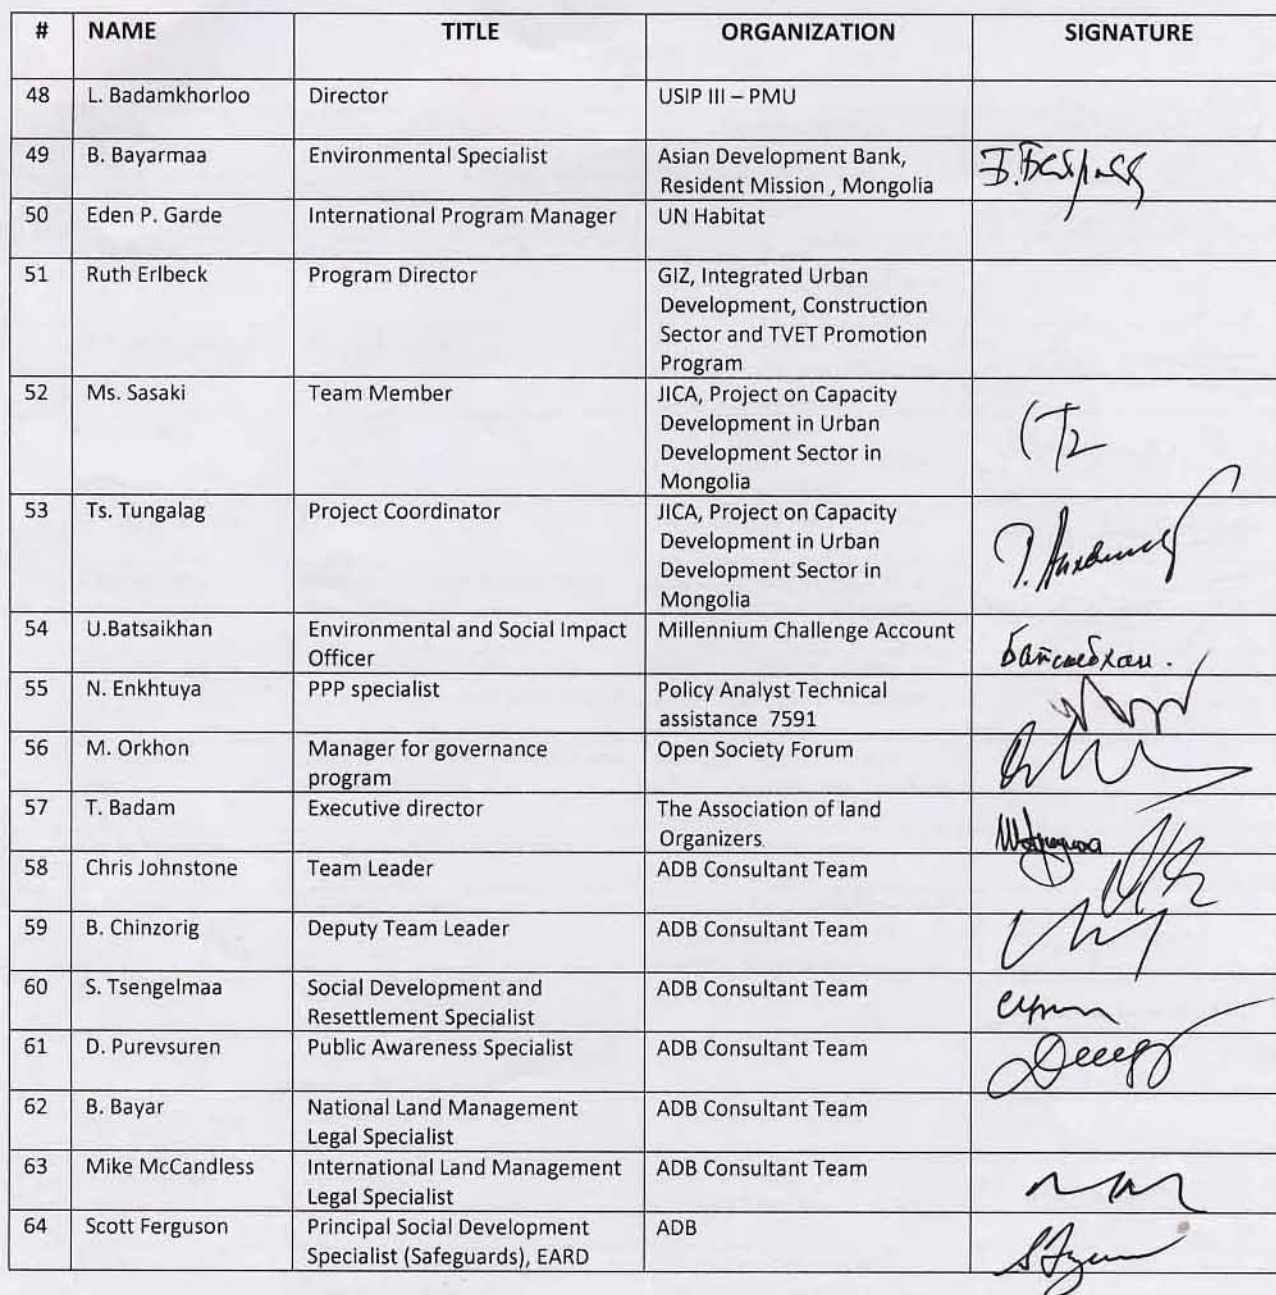 # NAME TITLE ORGANIZATION SIGNATURE
48 L. Badamkhorloo Director USIP III – PMU
49 B. Bayarmaa Environmental Specialist Asian Development Bank,
Resident Mission , Mongolia
50 Eden P. Garde International Program Manager UN Habitat
51 Ruth Erlbeck Program Director GIZ, Integrated Urban
Development, Construction
Sector and TVET Promotion
Program
52 Ms. Sasaki Team Member JICA, Project on Capacity
Development in Urban
Development Sector in
Mongolia
53 Ts. Tungalag Project Coordinator JICA, Project on Capacity
Development in Urban
Development Sector in
Mongolia
54 U.Batsaikhan Environmental and Social Impact Millennium Challenge Account
Officer
55 N. Enkhtuya PPP specialist Policy Analyst Technical
assistance 7591
56 M. Orkhon Manager for governance Open Society Forum
program
57 T. Badam Executive director The Association of land
Organizers
58 Chris Johnstone Team Leader ADB Consultant Team
59 B. Chinzorig Deputy Team Leader ADB Consultant Team
60 S. Tsengelmaa Social Development and ADB Consultant Team
Resettlement Specialist
61 D. Purevsuren Public Awareness Specialist ADB Consultant Team
62 B. Bayar National Land Management ADB Consultant Team
Legal Specialist
63 Mike McCandless International Land Management ADB Consultant Team
Legal Specialist
64 Scott Ferguson Principal Social Development ADB
Specialist (Safeguards), EARD